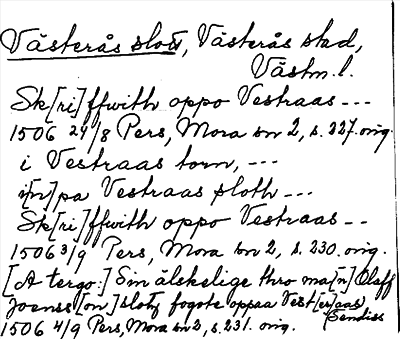 Västerås slott, Västerås stad,
Västm.l.
Sk[ri]ffwith oppo Vestraas ---
1506 24/8 Pers, Mora sn 2, s. 227. orig.
i Vestraas torn, ---
i[n]pa Vestraas sloth ---
Sk[ri]ffwith oppo Vestraas --
1506 3/9 Pers, Mora sn 2, s. 230. orig.
[A tergo:] Sin älskelige thro ma[n] Olaff
Joenss[on] slotz fogote oppaa Vest[er]aas
Sendiss
1506 4/9 Pers, Mora sn 2, s. 231. orig.